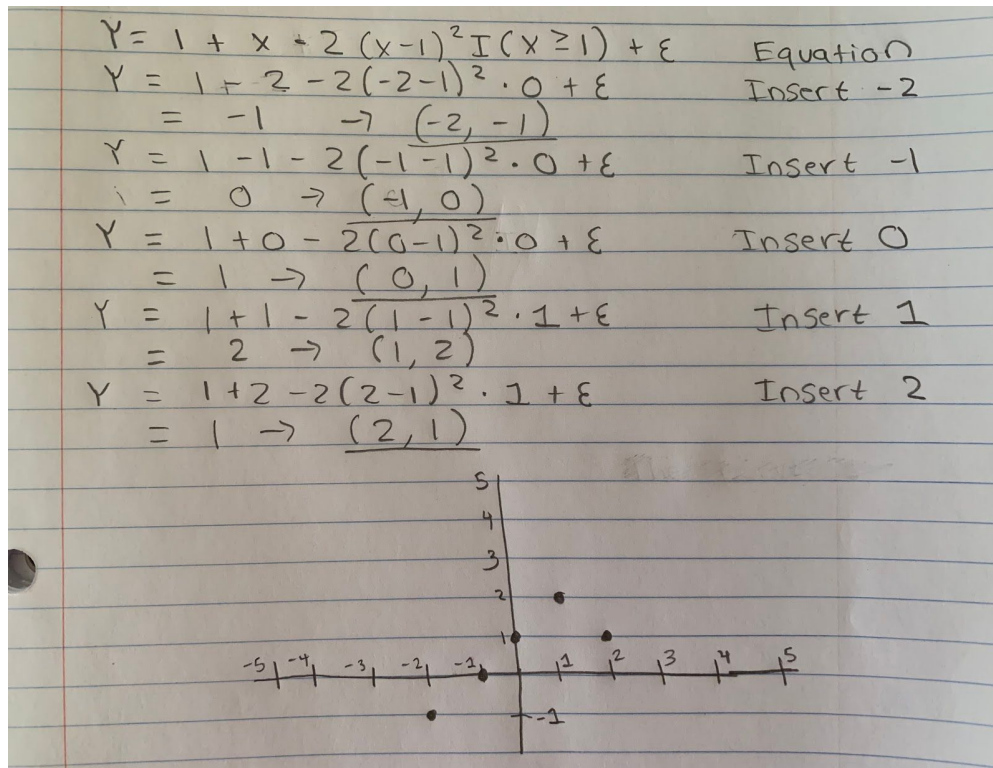 Y = 1 + x - 2 (x-1)² I (x ≥ 1) + ε Equation
Y = 1 - 2 - 2(-2-1)² · 0 + ε Insert -2
= -1 → (-2, -1)
Y = 1 - 1 - 2(-1-1)² · 0 + ε Insert -1
= 0 → (-1, 0)
Y = 1 + 0 - 2(0-1)² · 0 + ε Insert 0
= 1 → (0, 1)
Y = 1 + 1 - 2(1-1)² · 1 + ε Insert 1
= 2 → (1, 2)
Y = 1 + 2 - 2(2-1)² · 1 + ε Insert 2
= 1 → (2, 1)
5
4
3
2
1
-5 -4 -3 -2 -1 1 2 3 4 5
-1